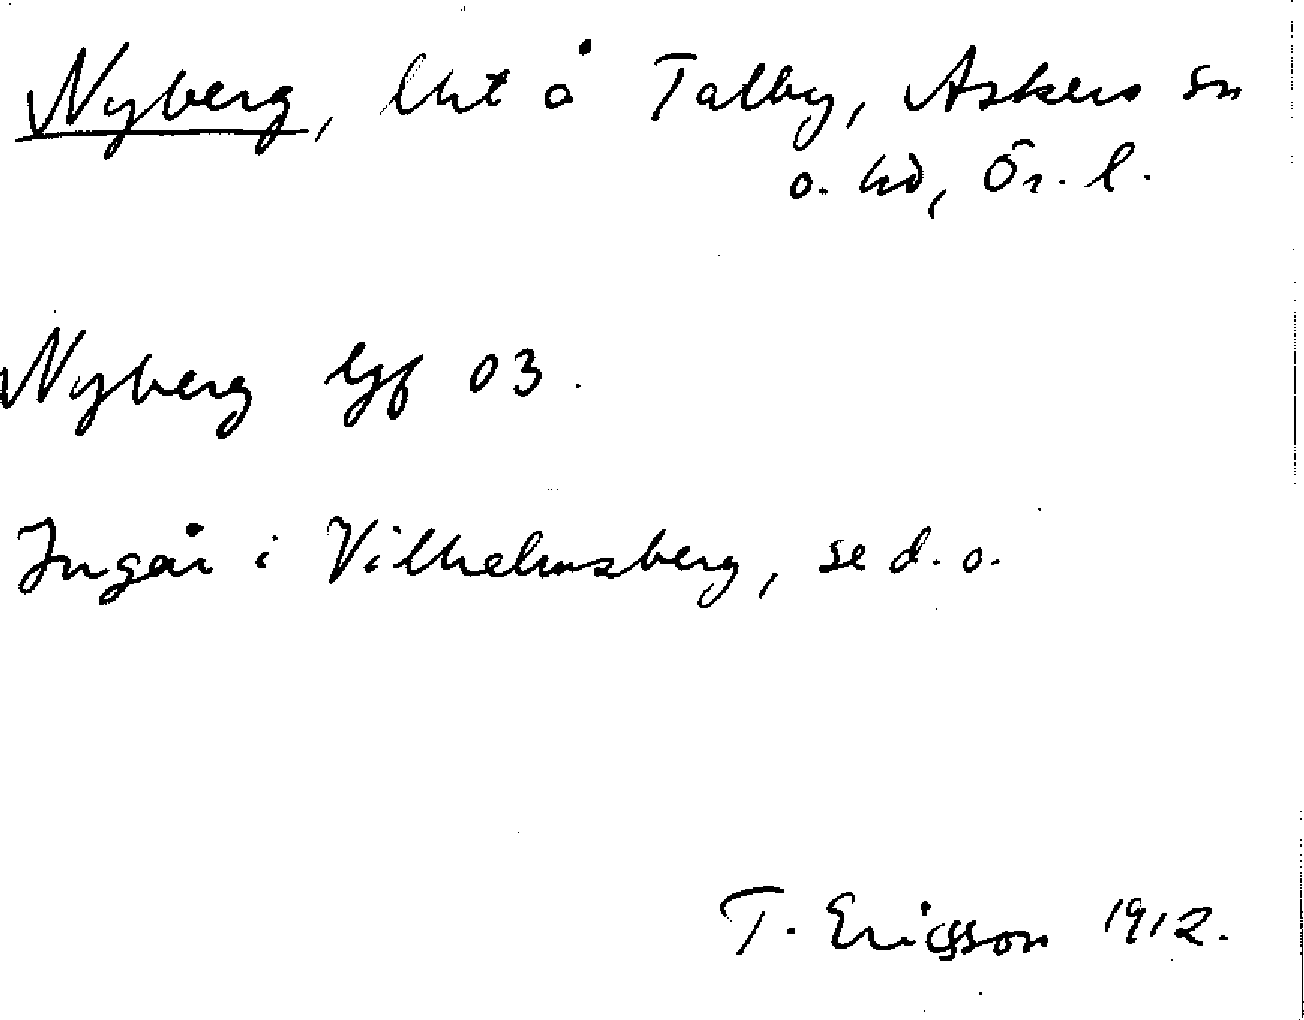 Nyberg, lht å Talby, Askers sn
o. hd, Ör. l.
Nyberg Ljf 03.
Ingår i Vilhelmsberg, se d. o.
T. Ericsson 1912.